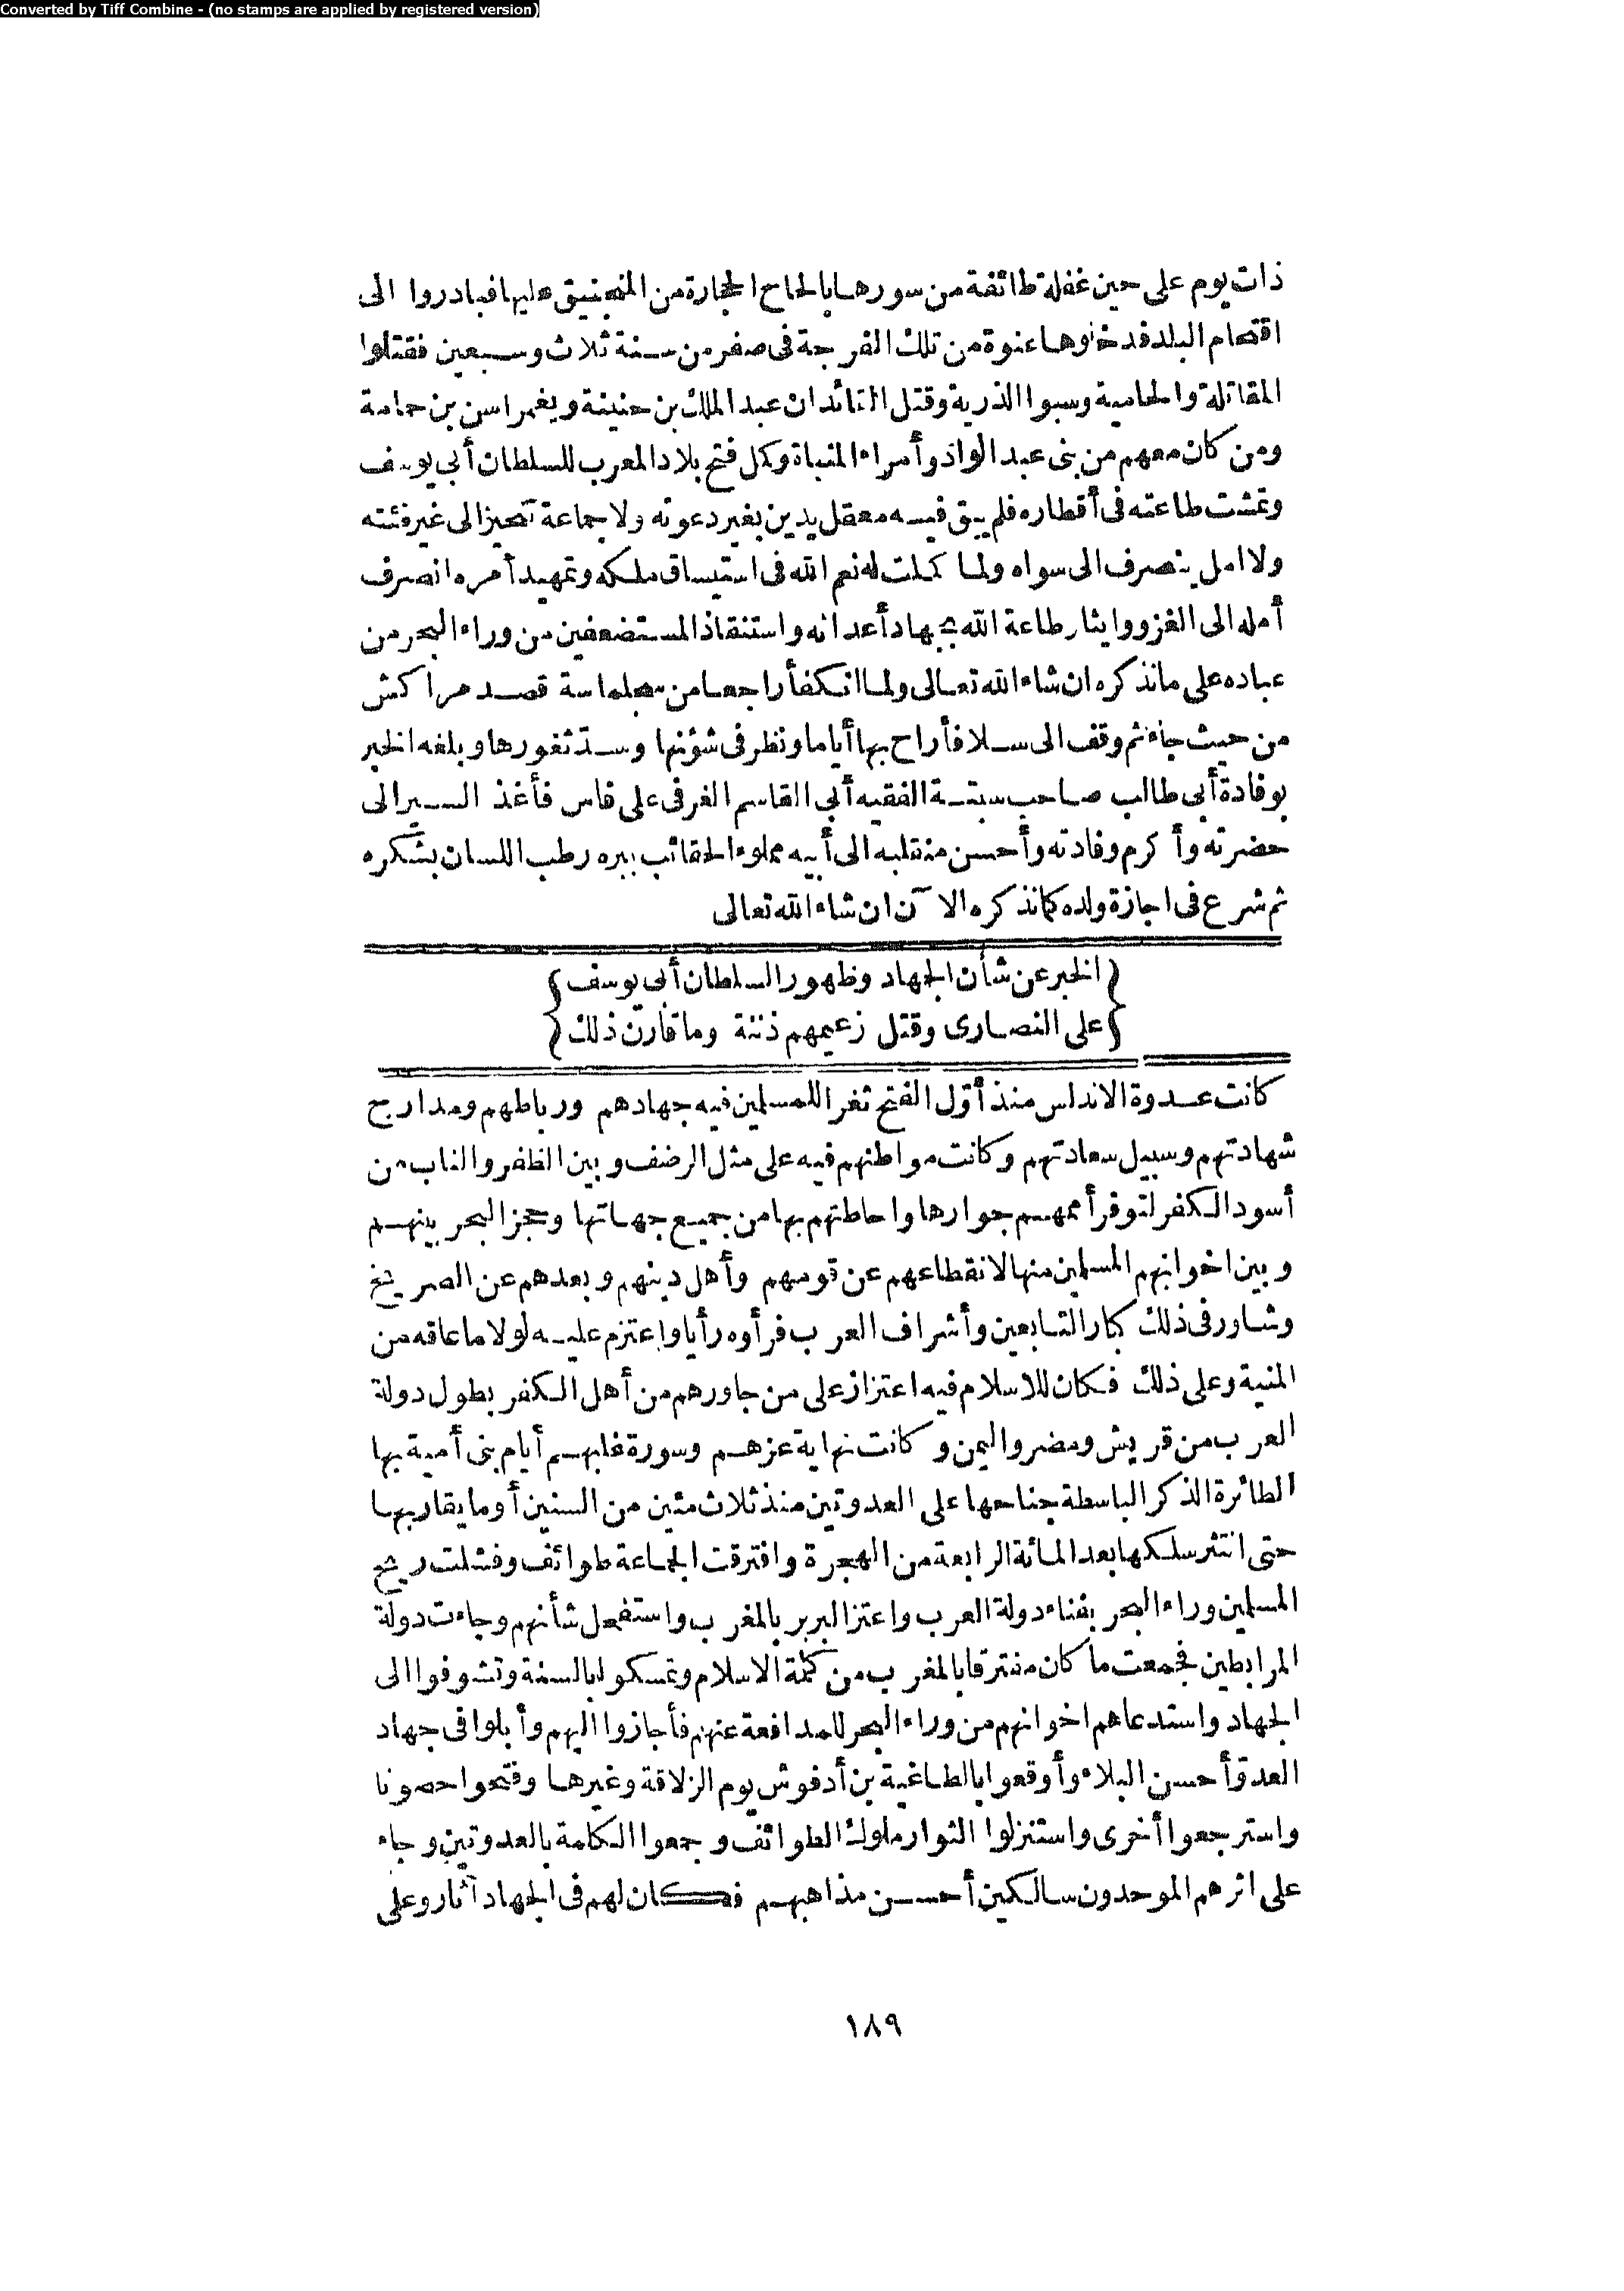 Converted by Tiff Combine - (no stamps are applied by registered version)
ذات يوم على حين غفلة طائفة من سورها بالحاح الحجارة من المنجنيق عليها فبادروا الى
اقتحام البلد فدخلوها عنوة من تلك الفرجة فى صفر من سنة ثلاث وسبعين فقتلوا
المقاتلة والحامية وسبوا الذرية وقتل القائدان عبد الملك بن حنينة ويغمراسن بن حمامة
ومن كان معهم من بنى عبد الواد وأمراء المنباة وكمل فتح بلاد المغرب للسلطان أبى يوسف
وتمشت طاعته فى أقطاره فلم يبق فيه معقل يدين بغير دعوته ولا جماعة تتحيز الى غير فئته
ولا امل ينصرف الى سواه ولما كملت له نعم الله فى استيساق ملكه وتمهيد أمره انصرف
أمله الى الغزو وايثار طاعة الله بجهاد أعدائه واستنقاذ المستضعفين من وراء البحر من
عباده على ما نذكره ان شاء الله تعالى ولما انكفأ راجعا من سجلماسة قصد مراكش
من حيث جاء ثم وقف الى سلا فأراح بها أياما ونظر فى شؤنها وسدّ ثغورها وبلغه الخبر
بوفادة أبى طالب صاحب سبتة الفقيه أبى القاسم الغرفى على فاس فأغذ السير الى
حضرته وأكرم وفادته وأحسن منقلبه الى أبيه مملوء الحقائب ببره رطب اللسان بشكره
ثم شرع فى اجازة ولده كما نذكره الا آن ان شاء الله تعالى
{ الخبر عن شأن الجهاد وظهور السلطان أبى يوسف }
{ على النصارى وقتل زعيمهم ذننة وما قارن ذلك }
كانت عدوة الاندلس منذ أوّل الفتح ثغرا للمسلمين فيه جهادهم ورباطهم ومدارج
شهادتهم وسبيل سعادتهم وكانت مواطنهم فيه على مثل الرضف وبين الظفر والناب من
أسود الكفر لتوفر أممهم جوارها واحاطتهم بها من جميع جهاتها وحجز البحر بينهم
وبين اخوانهم المسلمين منها لانقطاعهم عن قومهم وأهل دينهم وبعدهم عن الصريخ
وشاور فى ذلك كبار التابعين وأشراف العرب فرأوه رأيا واعتزم عليه لولا ما عاقه من
المنية وعلى ذلك فكان للاسلام فيه اعتزاز على من جاورهم من أهل الكفر بطول دولة
العرب من قريش ومضر واليمن وكانت نهاية عزهم وسورة غلبهم أيام بنى أمية بها
الطائرة الذكر الباسطة جناحها على العدوتين منذ ثلاث مئين من السنين أو ما يقاربها
حتى انتثر سلكها بعد المائة الرابعة من الهجرة وافترقت الجماعة طوائف وفشلت ريح
المسلمين وراء البحر بفناء دولة العرب واعتز البربر بالمغرب واستفحل شأنهم وجاءت دولة
المرابطين فجمعت ما كان مفترقا بالمغرب من كلمة الاسلام وتمسكوا بالسنة وتشوفوا الى
الجهاد واستدعاهم اخوانهم من وراء البحر للمدافعة عنهم فأجازوا اليهم وأبلوا فى جهاد
العدوّ أحسن البلاء وأوقعوا بالطاغية بن أدفوش يوم الزلاقة وغيرها وفتحوا حصونا
واسترجعوا أخرى واستنزلوا الثوار ملوك الطوائف وجمعوا الكلمة بالعدوتين وجاء
على اثرهم الموحدون سالكين أحسن مذاهبهم فكان لهم فى الجهاد آثار وعلى
١٨٩